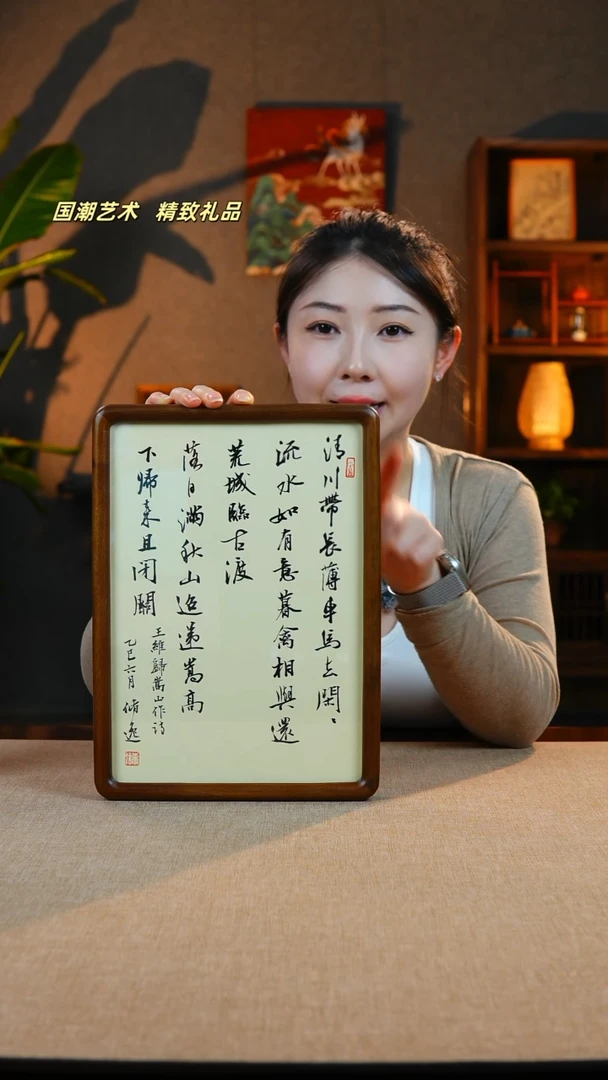 国潮艺术 精致礼品
清川帶長薄車馬去閑、
流水如有意暮禽相與還
荒城臨古渡
落日滿秋山迢遞嵩高
下歸來且閉關
王維歸嵩山作詩
乙巳六月 逸